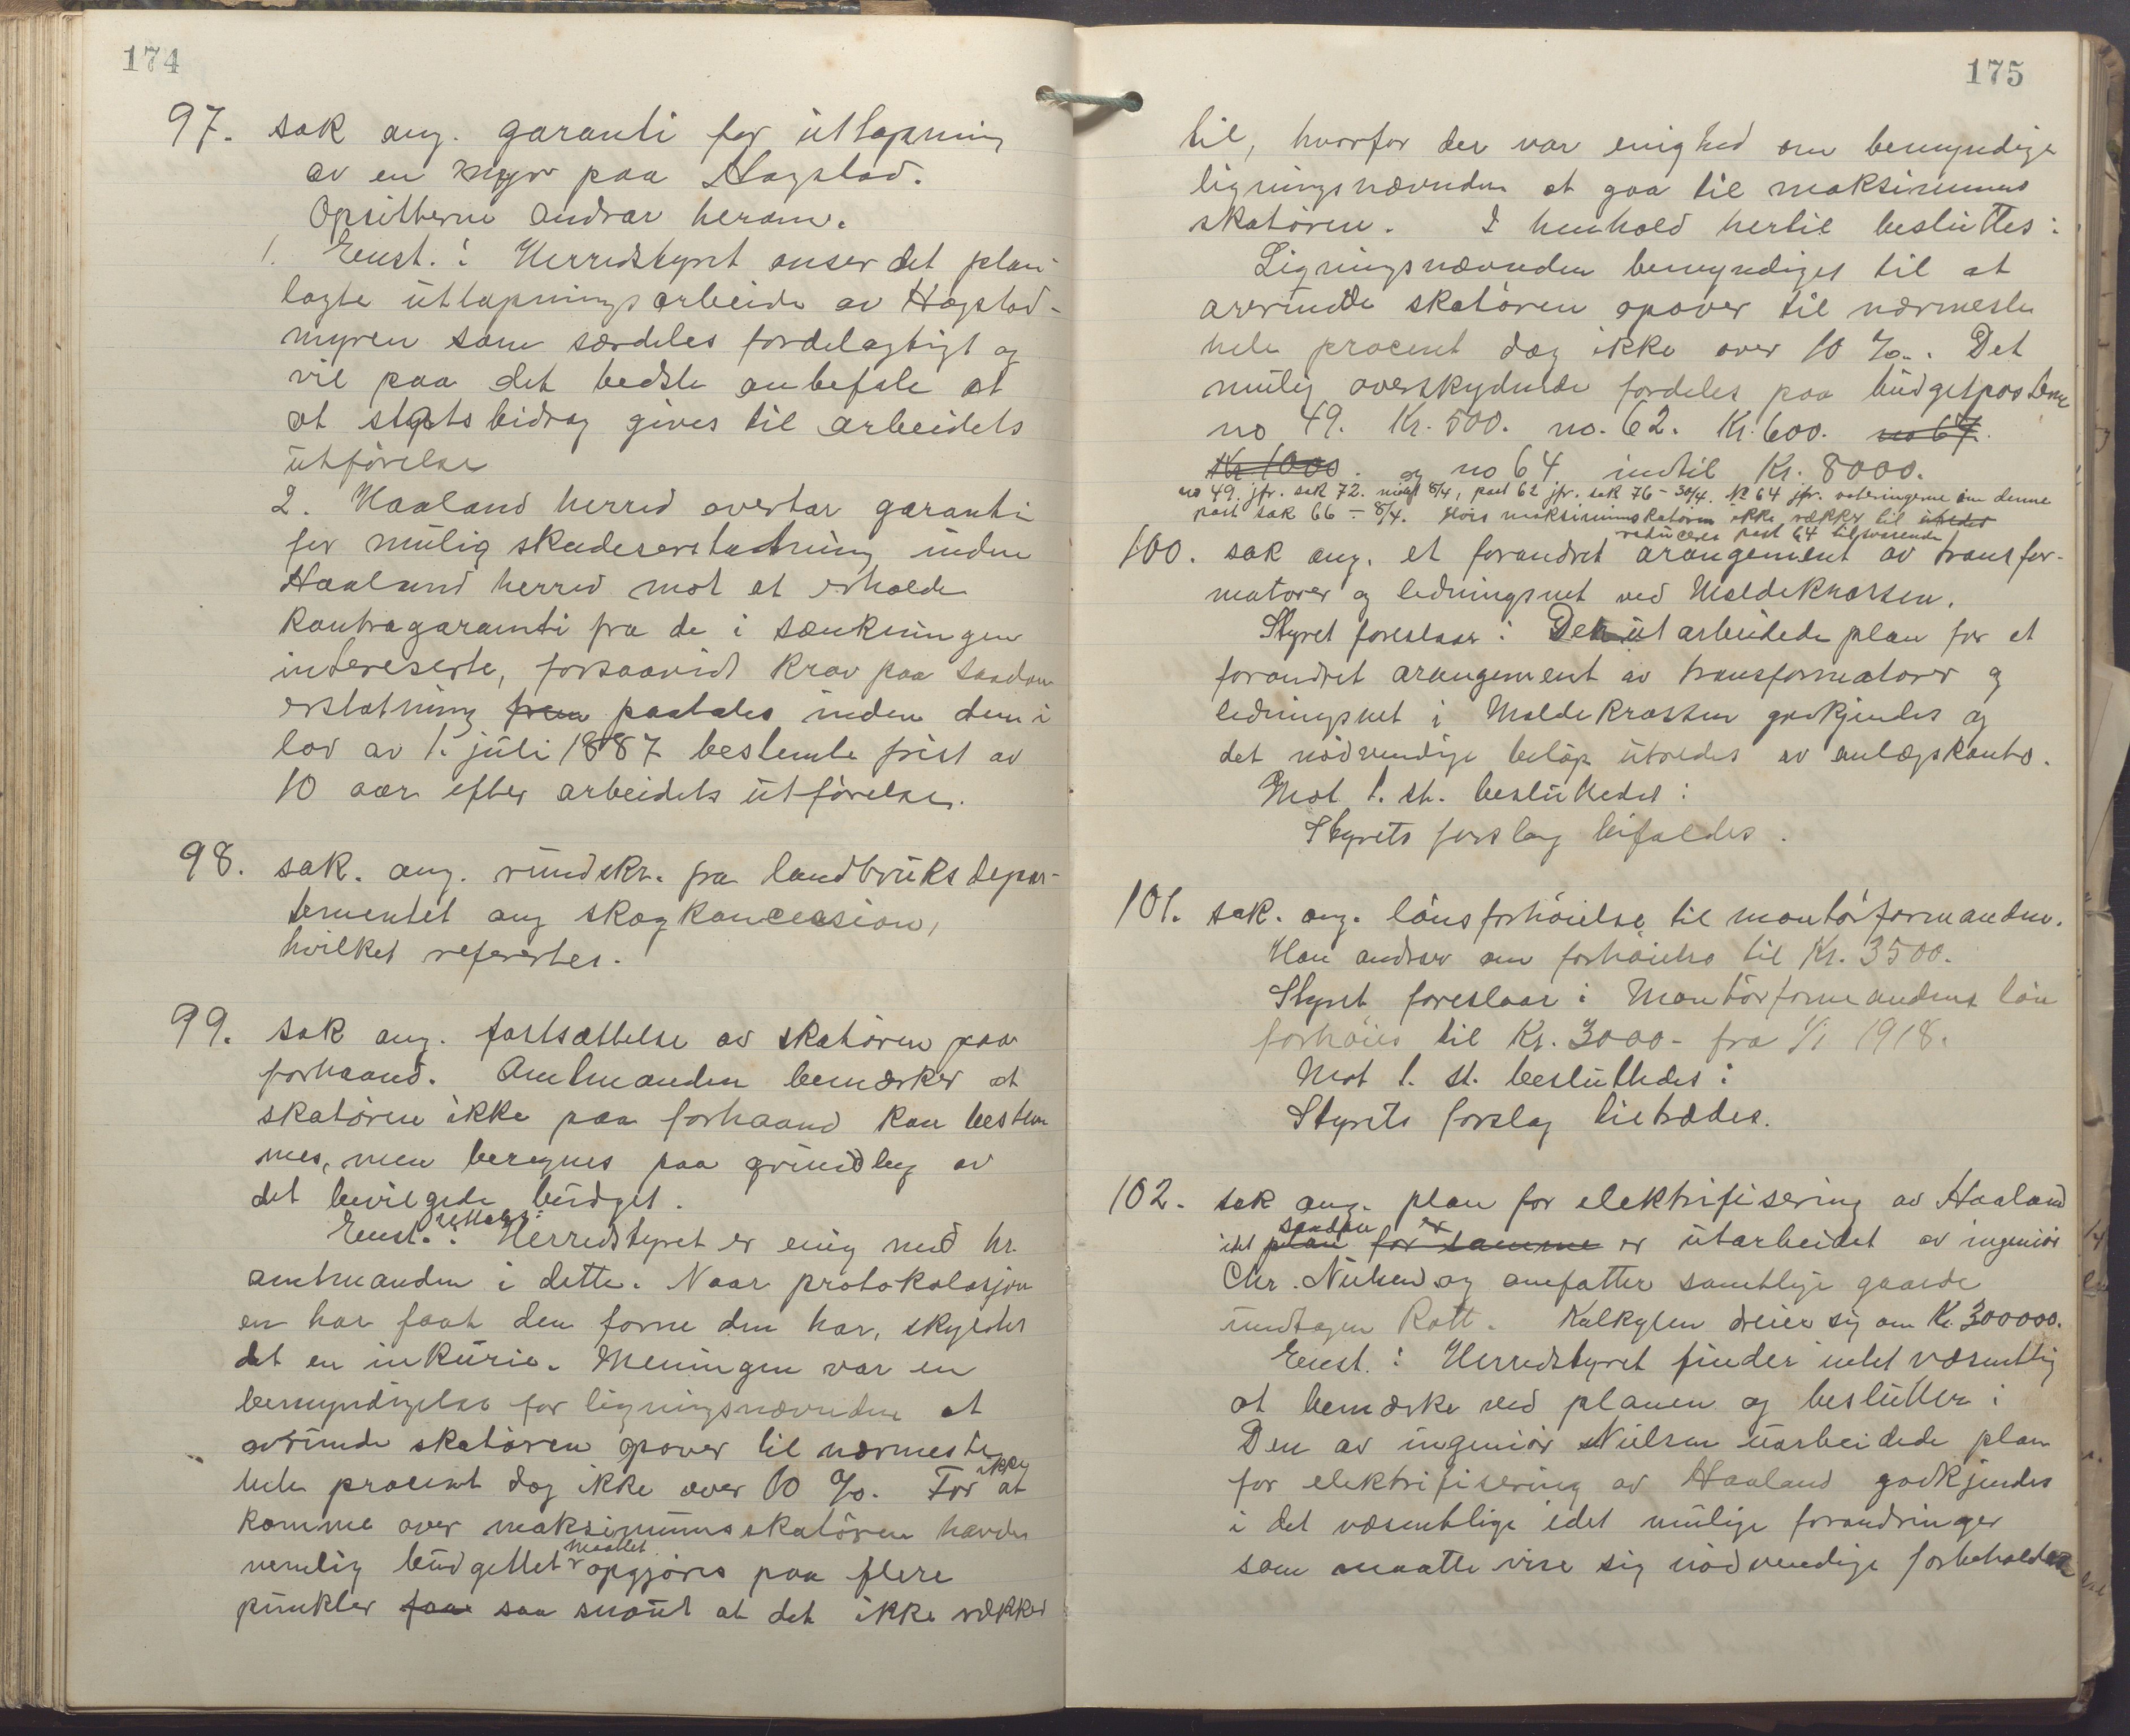 174
97. sak ang. garanti for uttapning
av en myr paa Hagstad.
Opsitterne andrar herom.
1. Enst.: Herredstyret anser det plan-
lagte uttapningsarbeide av Hagstad-
myren som særdeles fordelagtigt og
vil paa det bedste anbefale at
at statsbidrag gives til arbeidets
utførelse
2. Haaland herred overtar garanti
for mulig skadeserstatning inden
Haaland herred mot at erholde
kontragaranti fra de i sænkningen
intereserte, forsaavidt krav paa saadan
erstatning frem paatales inden den i
lov av 1. juli 1887 bestemte frist av
10 aar efter arbeidets utførelse.
98. sak. ang. rundskr. fra landbruksdepar-
tementet ang skogkoncession,
hvilket refertes.
99. sak ang. fastsættelse av skatøren paa
forhaand. Amtmanden bemærker at
skatøren ikke paa forhaand kan bestem
mes, men beregnes paa grundlag av
det bevilgede budget.
Enst.: Herredstyret er enig med hr.
amtmanden i dette. Naar protokolasjon
en har faat den form den har, skyldes
det en inkurie. Meningen var en
bemyndigelse for ligningsnævnden at
avrunde skatøren opover til nærmeste
hele procent dog ikke over 10 %. For ikke at
komme over maksimumsskatøren havde
nemlig budgettet maattet opgjøres paa flere
punkter faa saa snaut at det ikke rækker
175
til, hvorfor der var enighed om bemyndige
ligningsnævnden at gaa til maksimums
skatøren. I henhold hertil besluttes:
Ligningsnævnden bemyndiges til at
avrunde skatøren opover til nærmeste
hele procent dog ikke over 10 %. Det
mulig overskydende fordeles paa budgetpostene
no 49. Kr. 500. no. 62. Kr. 600. no 67.
Kr 1000. og no 64 indtil Kr. 8000.
no 49. jfr. sak 72. møt 8/4, post 62 jfr. sak 76 - 30/4. No 64 jfr. voteringerne om denne
post sak 66 - 8/4. Hvis maksimumskatøren ikke rækker til utredes
reduceres post 64 tilsvarende
100. sak ang. et forandret arangement av transfor-
matorer og ledningsnet ved Moldekrossen.
Styret foreslaar: Den utarbeidede plan for et
forandret arangement av transformatorer og
ledningsnet i Moldekrossen godkjendes og
det nødvendige beløp utredes av anlægskonto.
Mot 1. st. besluttedes:
Styrets forslag bifaldes.
101. sak. ang. lønsforhøielse til montørformanden.
Han andrar om forhøielse til Kr. 3500.
Styret foreslaar: Montørformandens løn
forhøies til Kr. 3000- fra 1/1 1918.
Mot 1. st. besluttedes:
Styrets forslag tiltrædes.
102. sak ang. plan for elektrifisering av Haaland
idet plan saadan for samme er er utarbeidet av ingeniør
Chr. Nielsen og omfatter samtlige gaarde
undtagen Rott. Kalkylen dreier sig om Kr. 300000.
Enst.: Herredstyret finder intet væsentlig
at bemærke ved planen og beslutter:
Den av ingeniør Nielsen uarbeidede plan
for elektrifisering av Haaland godkjendes
i det væsentlige idet mulige forandringer
som maatte vise sig nødvendige forbeholdes